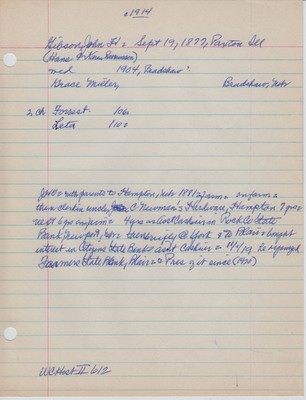 1914
Gibson, John H = Sept 19, 1877, Paxton Ill
(Hans & Karn
md 1904, Bradshaw
Grace Miller, Bradshaw, Nebr
2 ch Forrest 1906
Leta
with parents to Hampton, Nebr 1887 farm = on farm =
then clerk in under C Newman's Hardware, Hampton 2 yrs
next 6 yrs on farm = 4 yrs as Asst Cashier in Rock Co State
Bank, Newport, Nebr = to York & to Blair & bought
interest in Citizens State Bank & asst Cashier =
Farmers State Bank, Blair = Pres of it since
WC Hist II 612